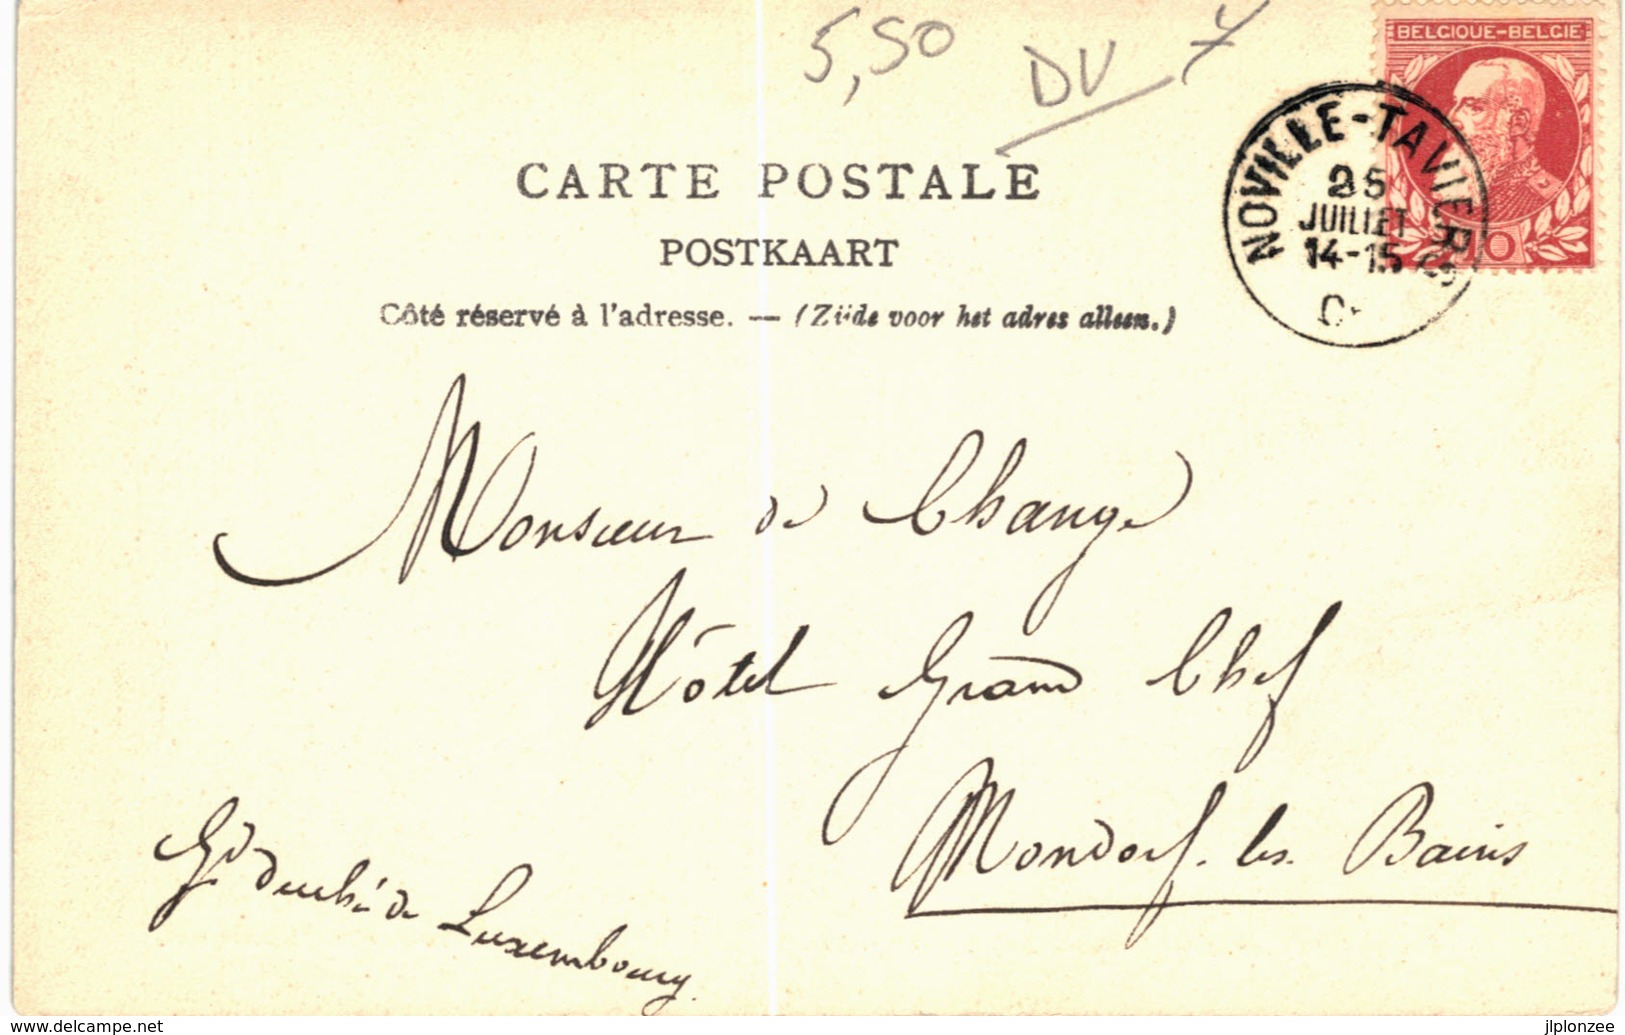 5,50 DV
BELGIQUE-BELGIE
NOVILLE-TAVIERS
25
JUILLET
14-15
10
CARTE POSTALE
POSTKAART
Côté réservé à l'adresse. — (Zijde voor het adres alleen.)
Monsieur de Change
Hôtel Grand Chef
Mondorf-les-Bains
Gd Duché de Luxembourg
www.delcampe.net
jlplonzee